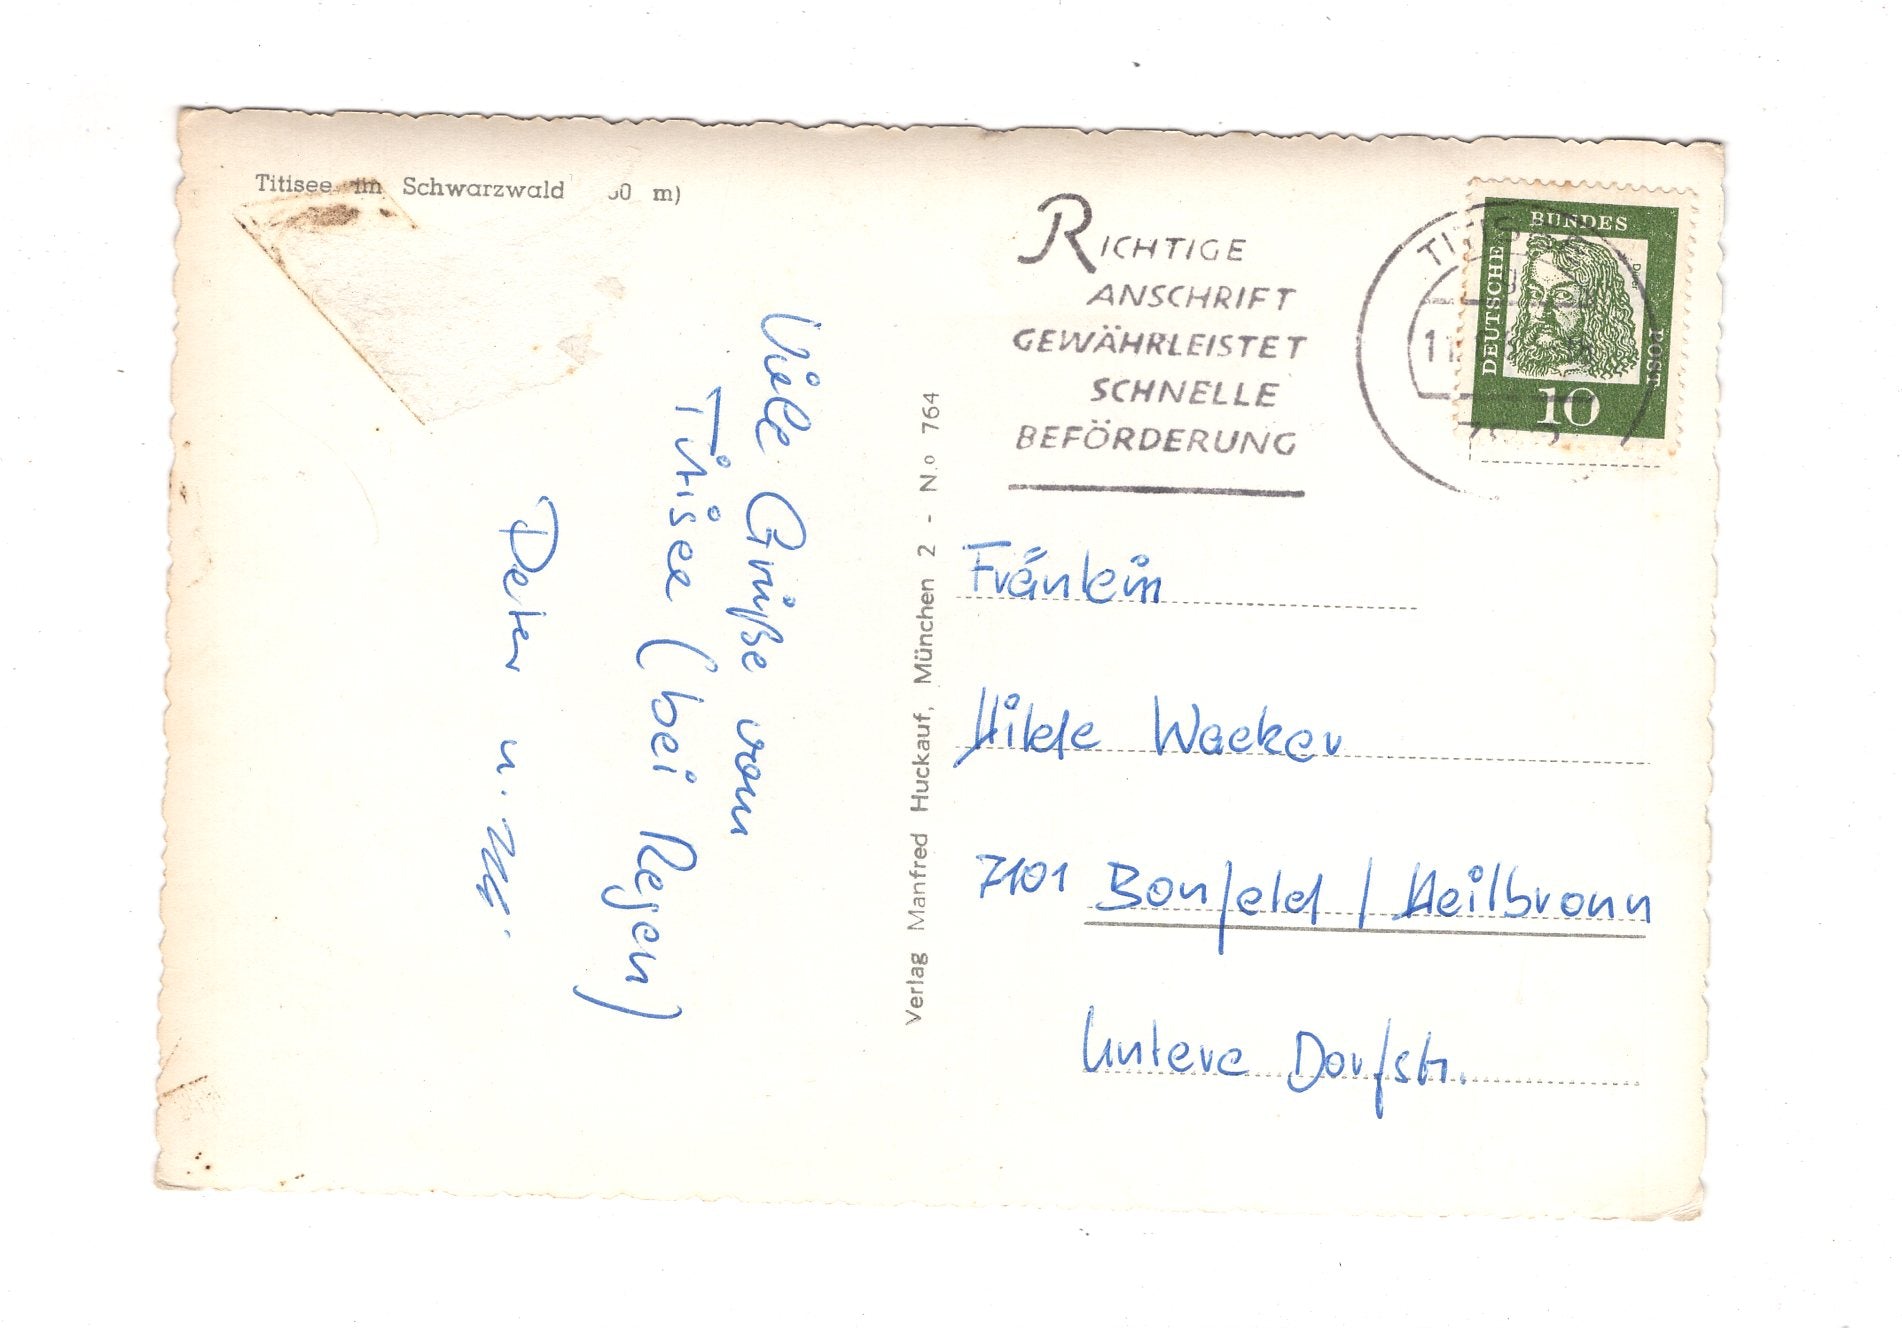 Titisee im Schwarzwald 50 m)
Viele Grüße vom
Titisee (bei Regen)
Peter u.
Verlag Manfred Huckauf, München 2 - N.o 764
RICHTIGE
ANSCHRIFT
GEWÄHRLEISTET
SCHNELLE
BEFÖRDERUNG
DEUTSCHE BUNDES POST
10
Fräulein
Hilde Wacker
7101 Bonfeld / Heilbronn
Untere Dorfstr.